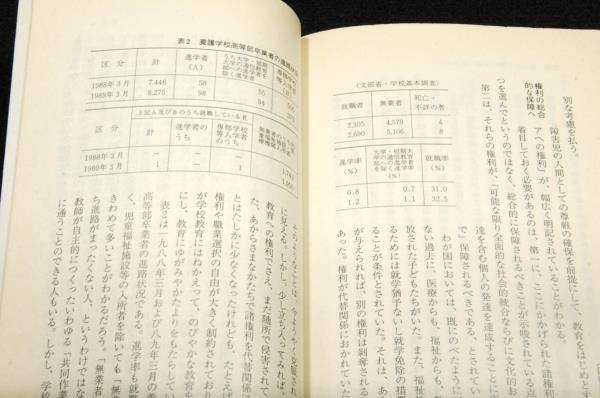 別な考慮を払う。
障害児の人間としての尊厳の確保を前提にして、教育をはじめとす
権利の総合
的な保障へ
アへの権利」が、幅広く明記されていることがわかる。
着目しておく必要があるのは、第一に、ここにかかげられた諸権利
つを選んでというのではなく、総合的に保障されるべきことが示唆されている点
第二は、それらの権利が、「可能な限り全面的な社会的統合ならびに文化的お
達を含む個人の発達を達成すること
で」保障されるべきである、とされてい
わが国においては、既にのべたように
ない過去に、医療からも、福祉からも、
放された子どもたちがいた。また、福祉
るためには就学猶予ないし就学免除の措
ることが条件とされていた。それは、あ
が与えられれば、別の権利は剝奪される
あった。権利が代替関係におかれていた
(文部省・学校基本調査)
就職者 無業者 死亡・不詳の者
2,305 4,579 4
2,690 5,106 8
進学率(%) 就職率(%)
0.8 0.7 31.0
1.2 1.1 32.5
表2 養護学校高等部卒業者の進路状況
区分 計 進学者(A)
1988年3月 7,446 58 55
1989年3月 8,275 98 94
上記A及びBのうち就職している者
区分 計 進学者のうち
1988年3月 — —
1989年3月 1 1
に見える。しかし、少し立ち入ってみれば、
教育への権利でさえ、まだ随所で侵害されて
た、あからさまなかたちで諸権利を代替関係
とはたしかに少なくなったけれども、たとえば
権利や職業選択の自由が大きく制約されており
が学校教育にはねかえって、のびやかな教育を
にし、教育にゆがみやかたよりをもたらしてい
表2は一九八八年三月および八九年三月の養
高等部卒業者の進路状況である。進学率も就職
く、児童福祉施設等の入所者を除いても「無業
きわめて多いことがわかるだろう。「無業者
ち進路がまったくない人、というわけではな
教師が自主的につくったいわゆる「共同作業
に通うことのできる人もいる。しかし、学校